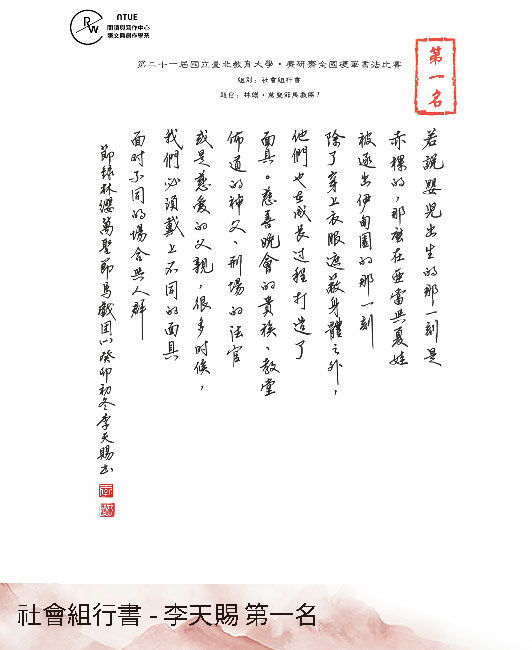 RW
NTUE
閱讀與寫作中心
語文與創作學系
第二十一屆國立臺北教育大學・廣研齋全國硬筆書法比賽
組別：社會組行書
第一名
若說嬰兒出生的那一刻是
赤裸的，那麼在亞當與夏娃
被逐出伊甸園的那一刻
除了穿上衣服遮蔽身體之外，
他們也在成長過程打造了
面具。慈善晚會的貴族、教堂
佈道的神父、刑場的法官
或是慈愛的父親，很多時候，
我們必須戴上不同的面具
面对不同的場合與人群
節錄林纓萬聖節馬戲團以癸卯初冬李天賜書
社會組行書 - 李天賜 第一名